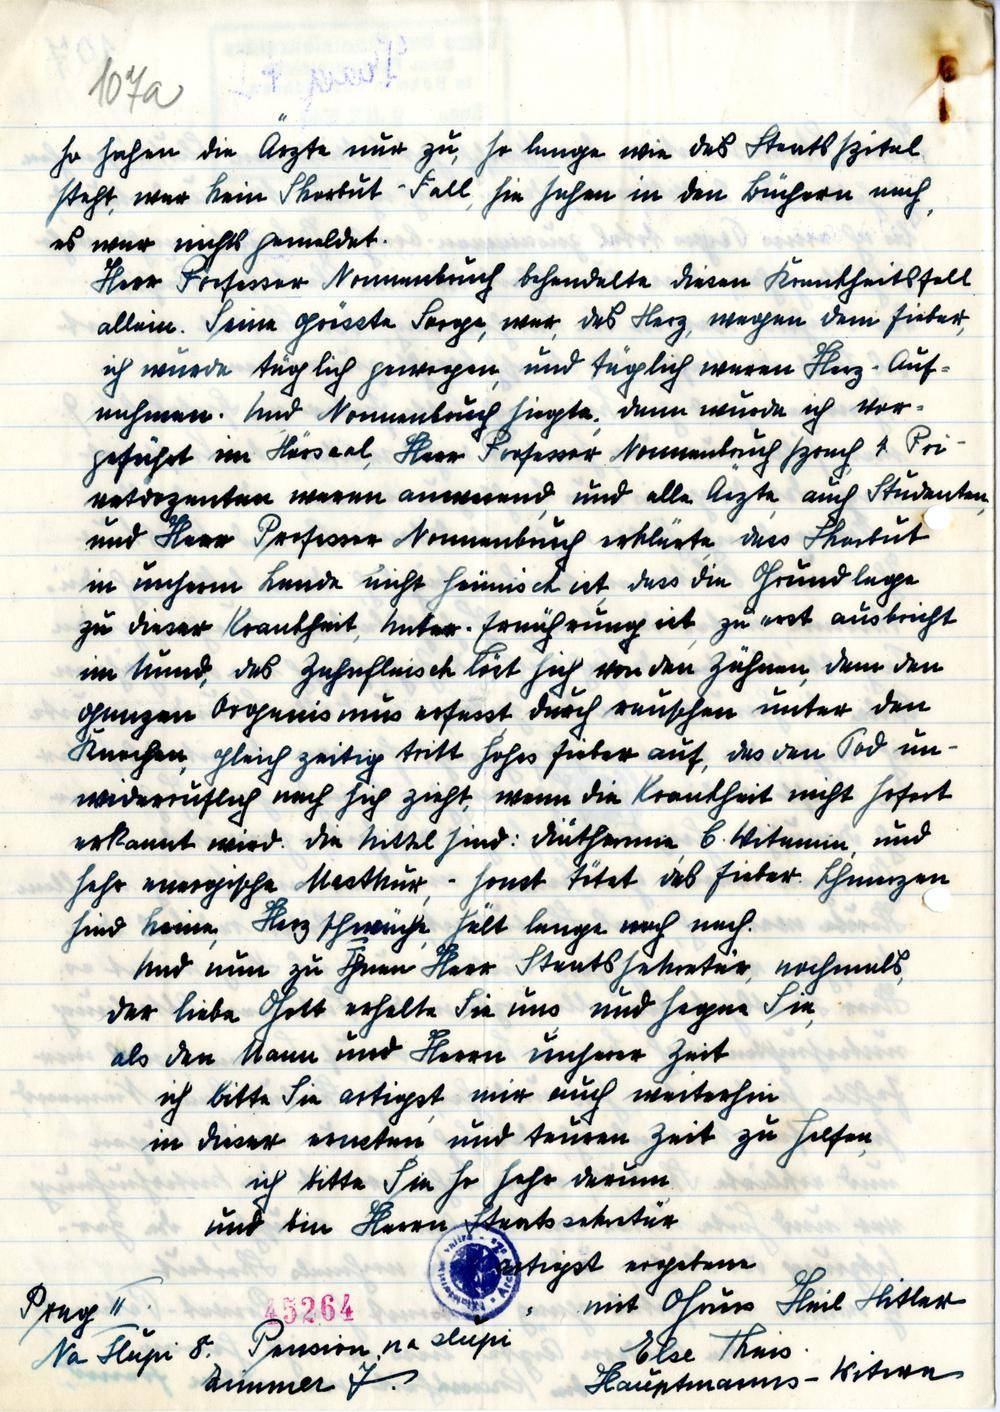 107a
so sahen die Ärzte nur zu, so lange wie das Staatsspital
steht, war kein Skorbut-Fall, sie sahen in den Büchern nach,
es war nichts gemeldet.
Herr Professor Nonnenbruch behandelte diesen Krankheitsfall
allein. Seine grösste Sorge, war, das Herz, wegen dem Fieber,
ich wurde täglich gewogen, und täglich waren Herz-Auf=
nahmen. Und Nonnenbruch siegte, dann wurde ich vor=
geführt im Hörsaal, Herr Professor Nonnenbruch sprach 4 Pri-
vatdozenten waren anwesend, und alle Ärzte, auch Studenten,
und Herr Professor Nonnenbruch erklärte, dass Skorbut
in unserm Lande nicht heimisch ist dass die Grundlage
zu dieser Krankheit, Unter-Ernährung ist, zu erst ausbricht
im Mund, das Zahnfleisch löst sich von den Zähnen, dann den
ganzen Organismus erfasst durch rauschen unter den
Knochen, gleich zeitig tritt hohes Fieber auf, das den Tod un-
widerruflich nach sich zieht, wenn die Krankheit nicht sofort
erkannt wird. die Mittel sind: Diäthermie, C. Witamin, und
sehr energische Mastkur, - sonst tötet das Fieber. Schmerzen
sind keine, Herzschwäche, hält lange noch nach.
Und nun zu Ihnen Herr Staatssekretär, nochmals,
der liebe Gott erhalte Sie uns und segne Sie,
als den Mann und Herrn unserer Zeit
ich bitte Sie artigst, mir auch weiterhin
in dieser ernsten und teuren Zeit zu helfen,
ich bitte Sie so sehr darum
und bin Herrn Staatssekretär
artigst ergebene
mit Gruss Heil Hitler
Prag II.
45264
Na Slupi 8. Pension na slupi
Zimmer 7.
Else Theis.
Hauptmanns-Witwe